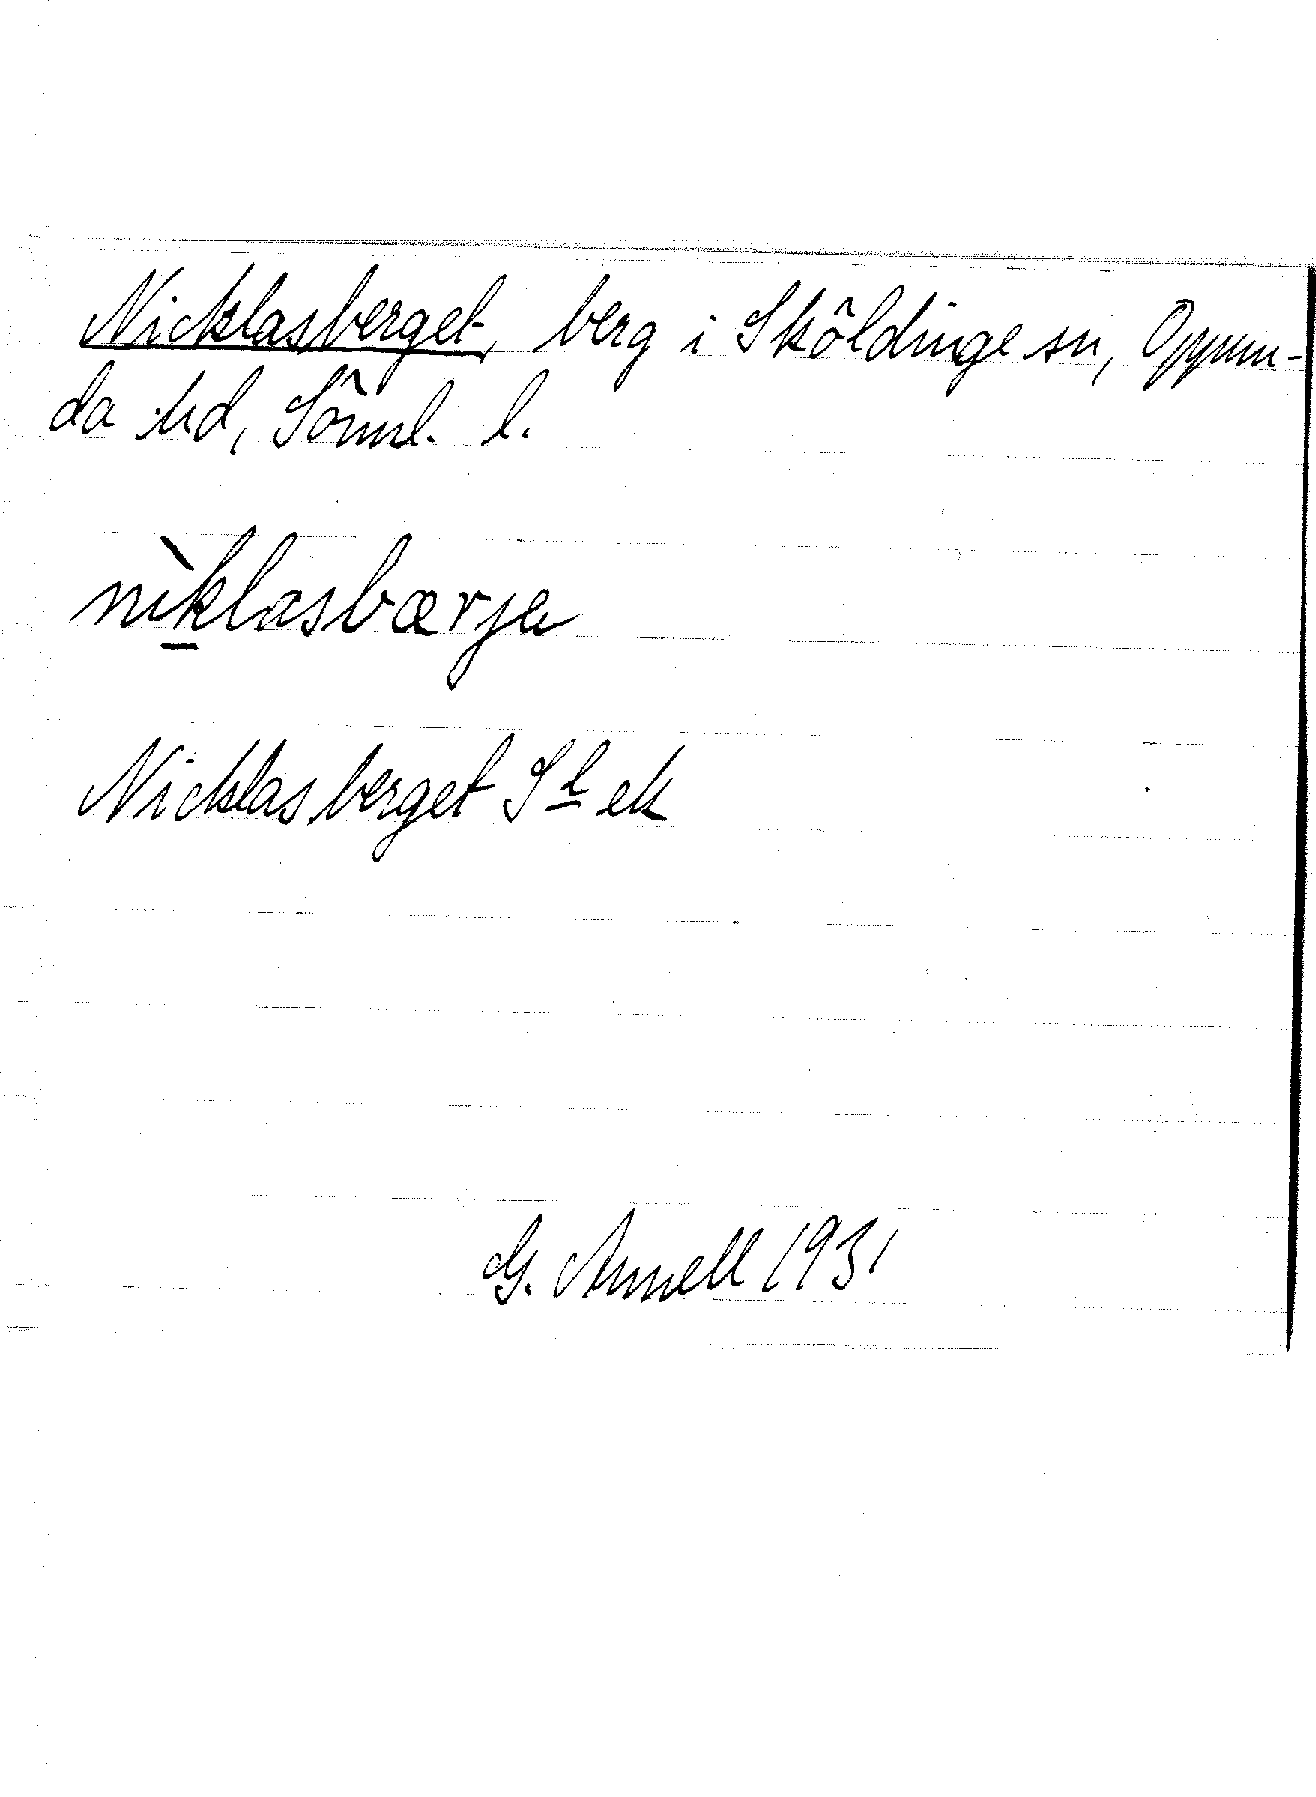 Nicklasberget, berg i Sköldinge sn, Oppun-
da hd, Sörml. l.
nìklasbærja
Nicklasberget Sl ek
G. Annell 1931